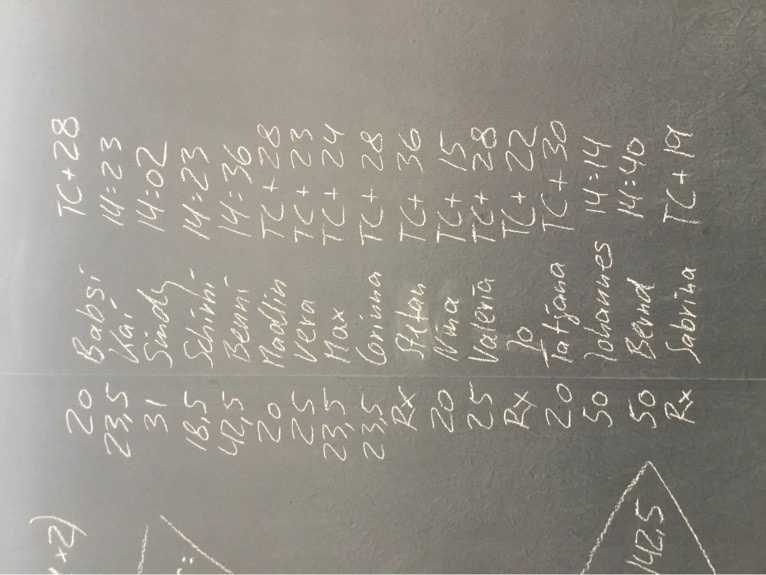 x2)
20 Babsi TC + 28
23,5 Kai 14:23
31 Sindy 14:02
18,5 Schirni 14:23
42,5 Benni 14:36
20 Madlin TC + 28
25 Vera TC + 23
23,5 Max TC + 24
23,5 Corinna TC + 28
Rx Stefan TC + 36
20 Nina TC + 15
25 Valeria TC + 28
Rx Jo TC + 22
20 Tatjana TC + 30
50 Johannes 14:14
42,5
50 Bernd 14:40
Rx Sabrina TC + 19